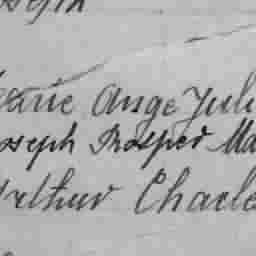 Joseph
Marie Ange Juli
Joseph Prosper Ma
Arthur Charle